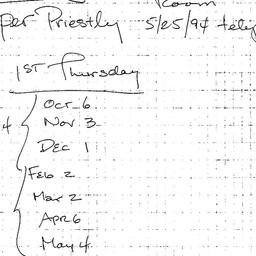 Room
per Priestly 5/25/94
1ST Thursday
Oct 6
4 Nov 3
DEC 1
Feb 2
Mar 2
APR 6
May 4